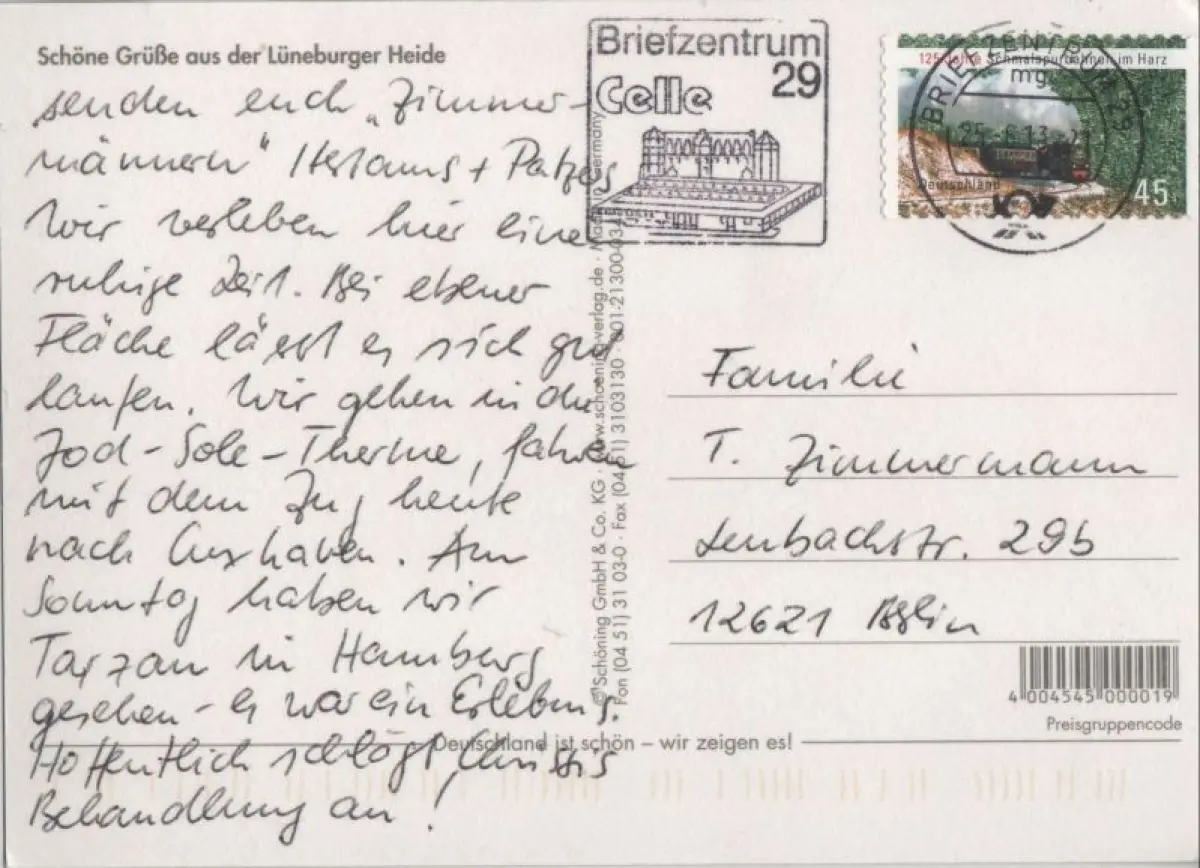 Schöne Grüße aus der Lüneburger Heide
senden euch „Zimmer-
männern“ + 
Wir verleben hier eine
ruhige Zeit. Bei ebener
Fläche lässt es sich gut
laufen. Wir gehen in die
Jod-Sole-Therme, fahren
mit dem Zug heute
nach Cuxhaven. Am
Sonntag haben wir
Tarzan in Hamburg
gesehen - es war ein Erlebnis.
Hoffentlich schlägt Christis
Behandlung an!
Briefzentrum
29
Celle
125 Jahre Schmalspurbahnen im Harz
Deutschland
45
BRIEFZENTRUM 29
mg
25.-6.13.-21
Familie
T. Zimmermann
Lenbachstr. 29b
12621 Berlin
© Schöning GmbH & Co. KG · www.schoening-verlag.de · Made in Germany
Fon (04 51) 31 03-0 · Fax (04 51) 3103130 ·
4 004545 000019
Preisgruppencode
Deutschland ist schön – wir zeigen es!